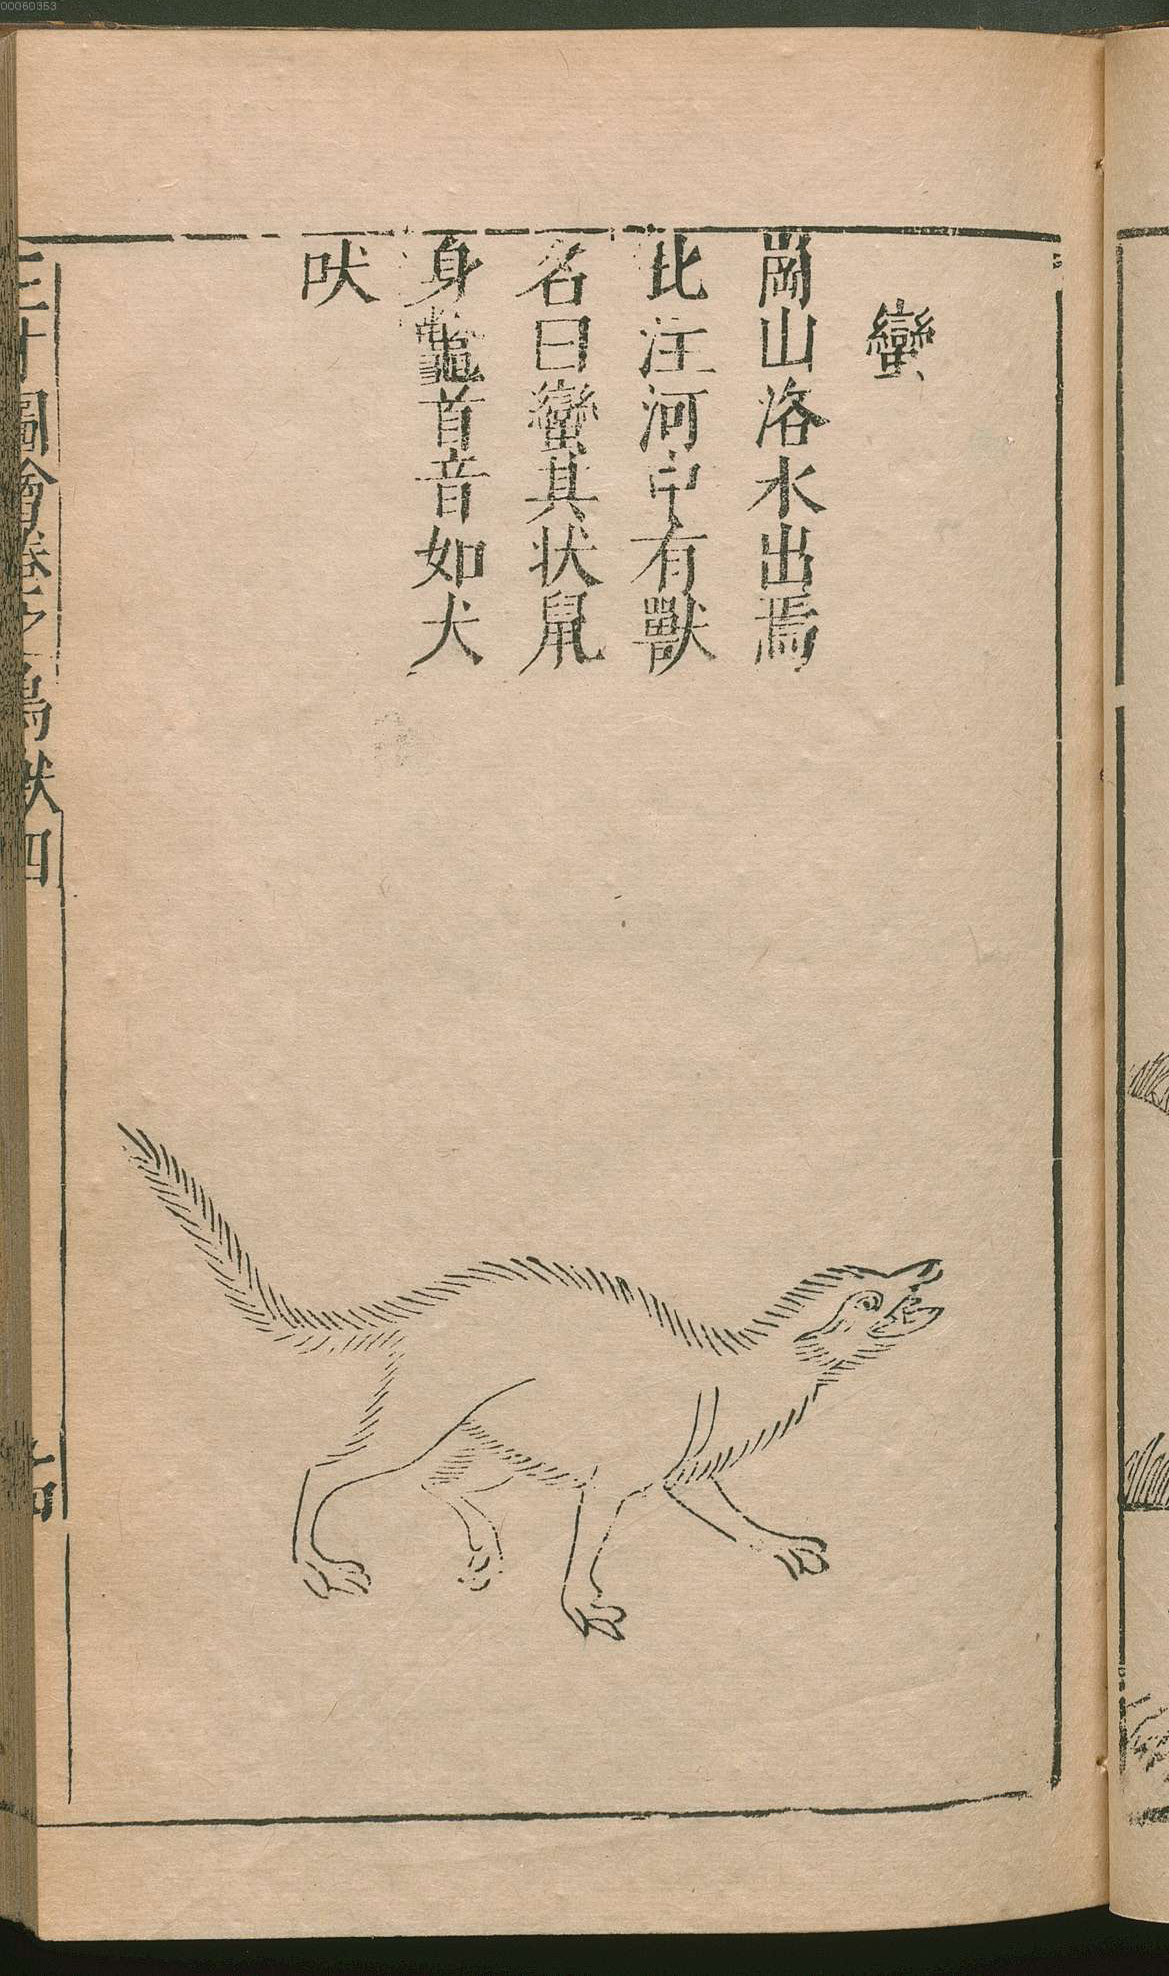 00060353
蠻
崗山洛水出焉
北注河中有獸
名曰蠻其状鼠
身鼈首音如犬
吠
三才圖會卷之鳥獸四